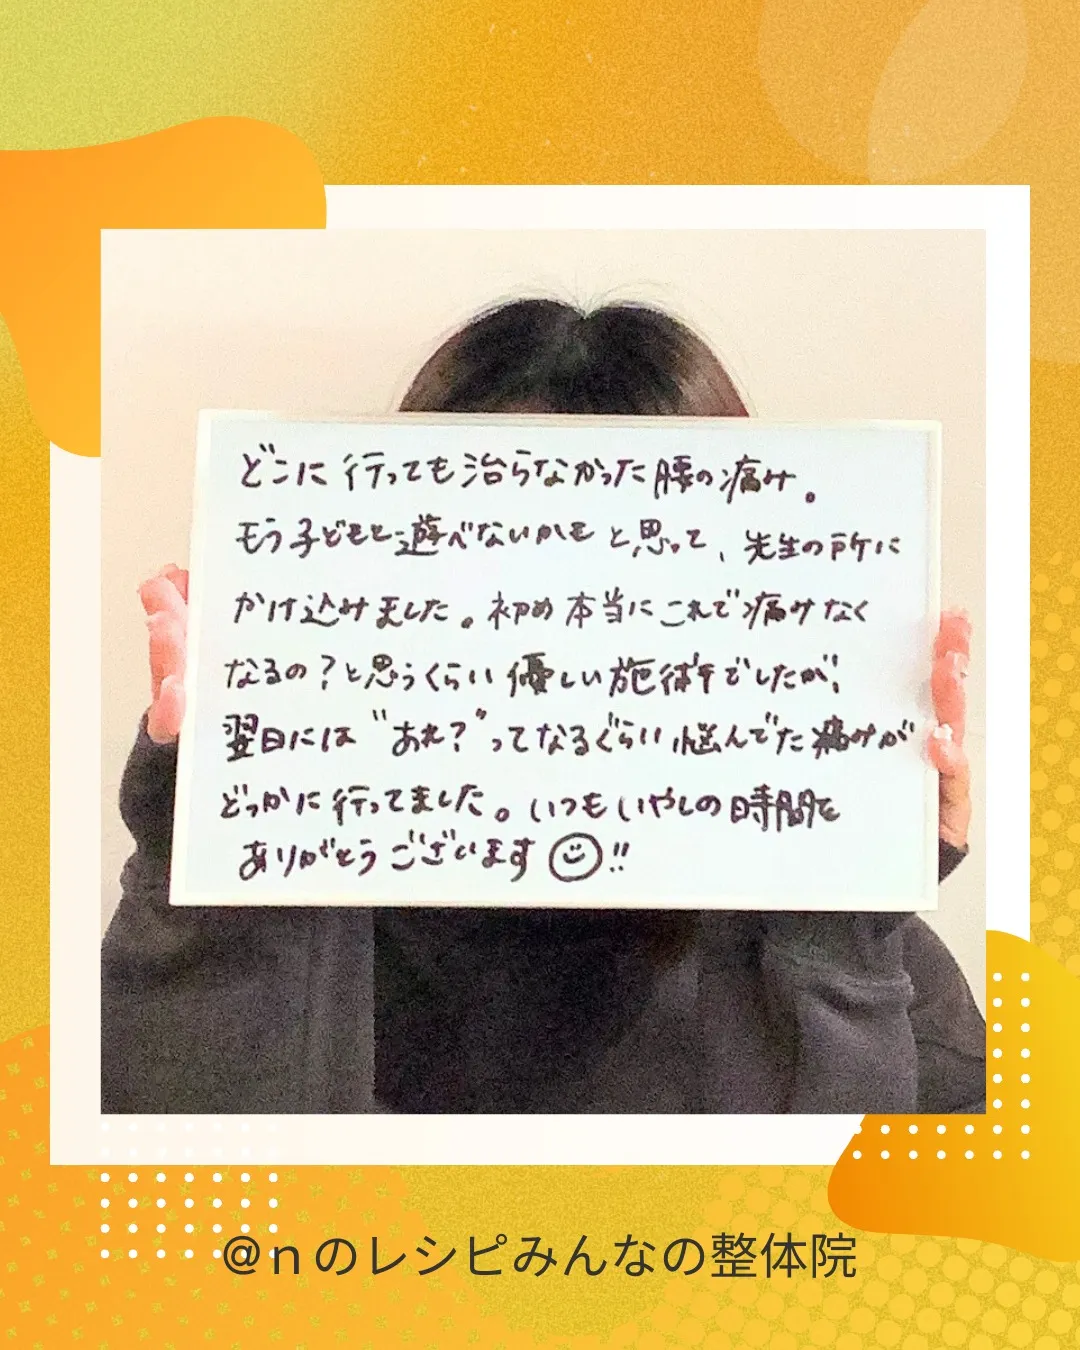 どこに行っても治らなかった腰の痛み。
もう子どもと遊べないかもと思って、先生の所に
かけ込みました。初め本当にこれで痛みなく
なるの?と思うくらい優しい施術でしたが、
翌日には"あれ?"ってなるぐらい悩んでた痛みが
どっかに行ってました。いつもいやしの時間を
ありがとうございます!!
@nのレシピみんなの整体院